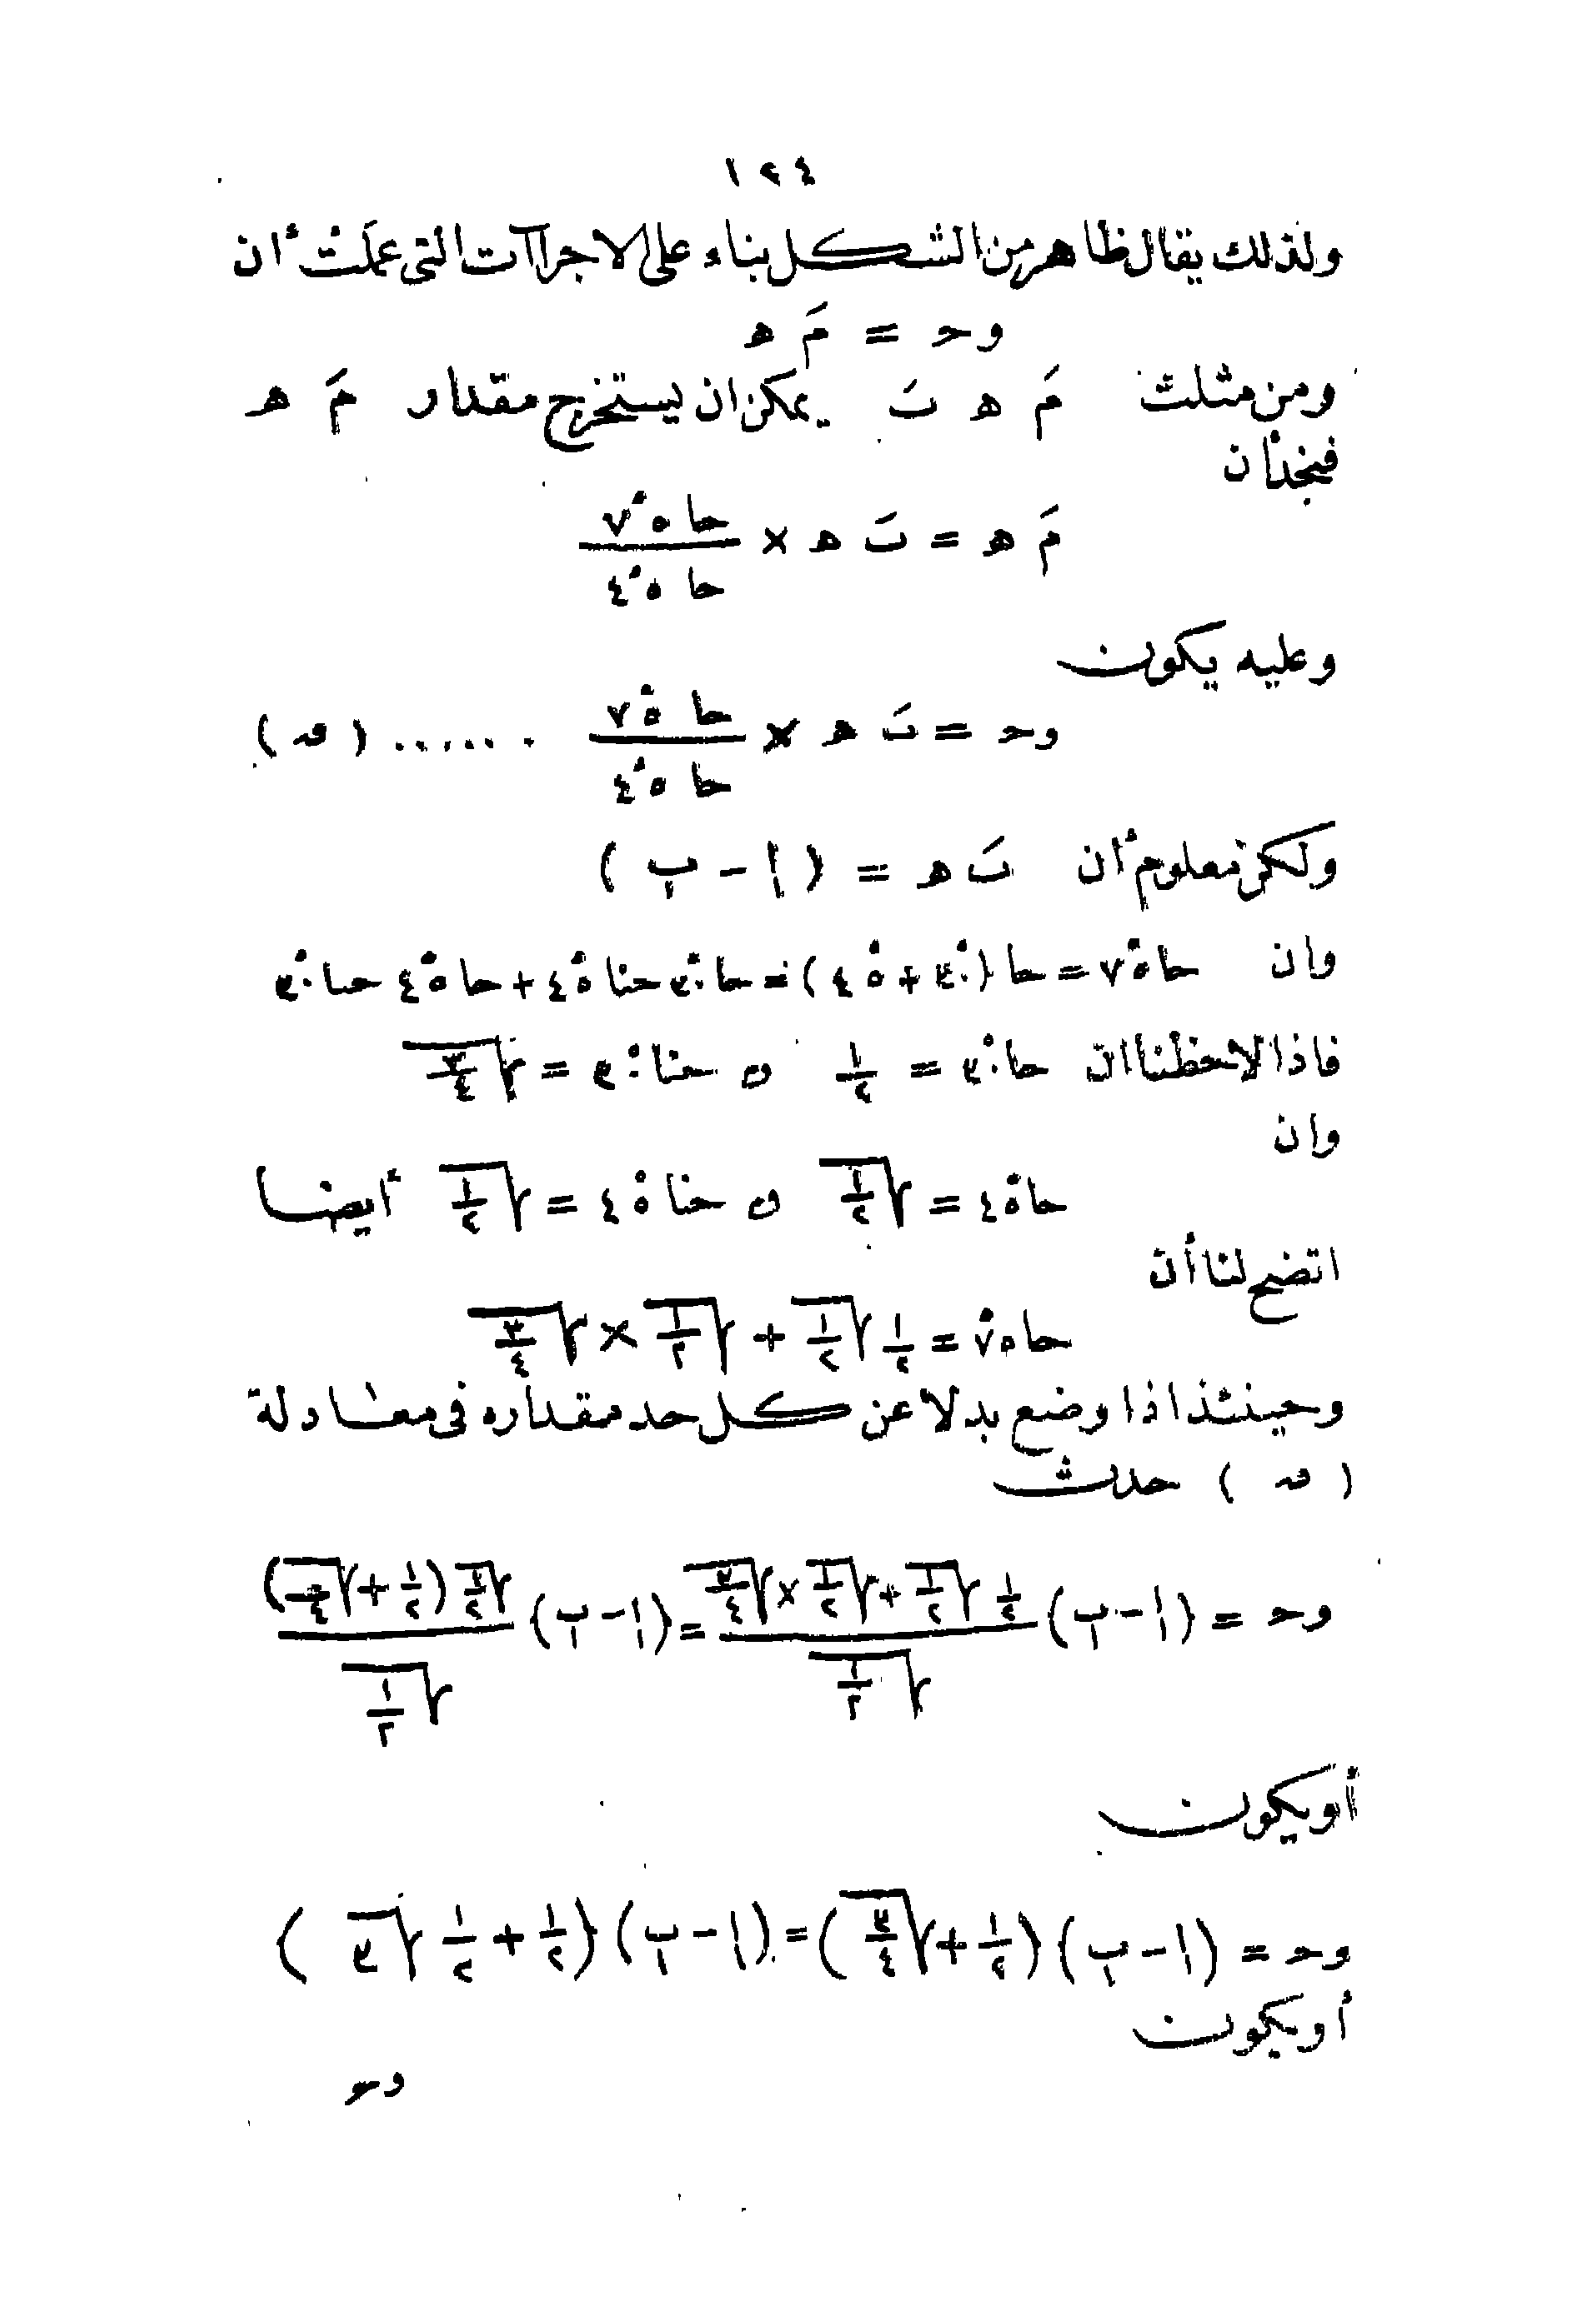 ١٢٤
ولذلك يقال ظاهر من الشكل بناء على الاجراآت التى عملت أن
وحـ = مَ هـ
ومن مثلث مَ هـ بَ يمكن ان يستخرج مقدار مَ هـ
فنجد أن
مَ هـ = بَ هـ × حا ٧٥° / حا ٤٥°
وعليه يكون
وحـ = بَ هـ × حا ٧٥° / حا ٤٥° ...... (ﻫ)
ولكن معلوم أن بَ هـ = (ا - ب)
وان حا ٧٥° = حا (٣٠° + ٤٥°) = حا ٣٠° حتا ٤٥° + حا ٤٥° حتا ٣٠°
فاذا لاحظنا ان حا ٣٠° = ١/٢ ، حتا ٣٠° = √(٣/٤)
وان
حا ٤٥° = √(١/٢) ، حتا ٤٥° = √(١/٢) أيضا
اتضح لنا أن
حا ٧٥° = ١/٢ √(١/٢) + √(١/٢) × √(٣/٤)
وحينئذ اذا وضع بدلا عن كل حد مقداره فى معادلة
(ﻫ) حدث
وحـ = (ا - ب) (١/٢ √(١/٢) + √(١/٢) × √(٣/٤)) / √(١/٢) = (ا - ب) √(١/٢) (١/٢ + √(٣/٤)) / √(١/٢)
أو يكون
وحـ = (ا - ب) (١/٢ + √(٣/٤)) = (ا - ب) (١/٢ + ١/٢ √٣)
أو يكون
وحـ